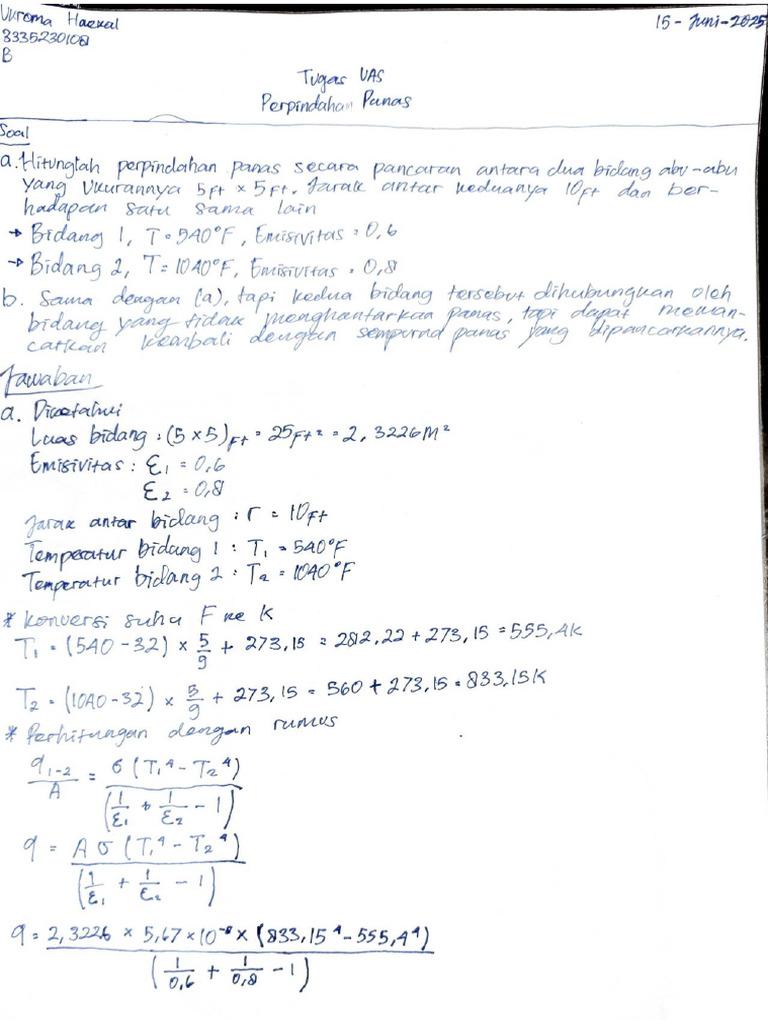 Ukroma Haekal
15 - Juni - 2025
8335230108
B
Tugas UAS
Perpindahan Panas
Soal
a. Hitunglah perpindahan panas secara pancaran antara dua bidang abu-abu
yang Ukurannya 5ft × 5ft. Jarak antar keduanya 10ft dan ber-
hadapan satu sama lain
→ Bidang 1, T = 540°F, Emisivitas = 0,6
→ Bidang 2, T = 1040°F, Emisivitas = 0,8
b. Sama dengan (a), tapi kedua bidang tersebut dihubungkan oleh
bidang yang tidak menghantarkan panas, tapi dapat meman-
carkan kembali dengan sempurna panas yang dipancarkannya.
Jawaban
a. Diketahui
Luas bidang : (5 × 5)ft = 25ft² = 2,3226 M²
Emisivitas : ε₁ = 0,6
ε₂ = 0,8
Jarak antar bidang : r = 10ft
Temperatur bidang 1 : T₁ = 540°F
Temperatur bidang 2 : T₂ = 1040°F
* Konversi suhu F ke K
T₁ = (540 - 32) × 5/9 + 273,15 = 282,22 + 273,15 = 555,4K
T₂ = (1040 - 32) × 5/9 + 273,15 = 560 + 273,15 = 833,15K
* Perhitungan dengan rumus
q₁₋₂/A = σ (T₁⁴ - T₂⁴) / (1/ε₁ + 1/ε₂ - 1)
q = A σ (T₁⁴ - T₂⁴) / (1/ε₁ + 1/ε₂ - 1)
q = 2,3226 × 5,67 × 10⁻⁸ × (833,15⁴ - 555,4⁴) / (1/0,6 + 1/0,8 - 1)